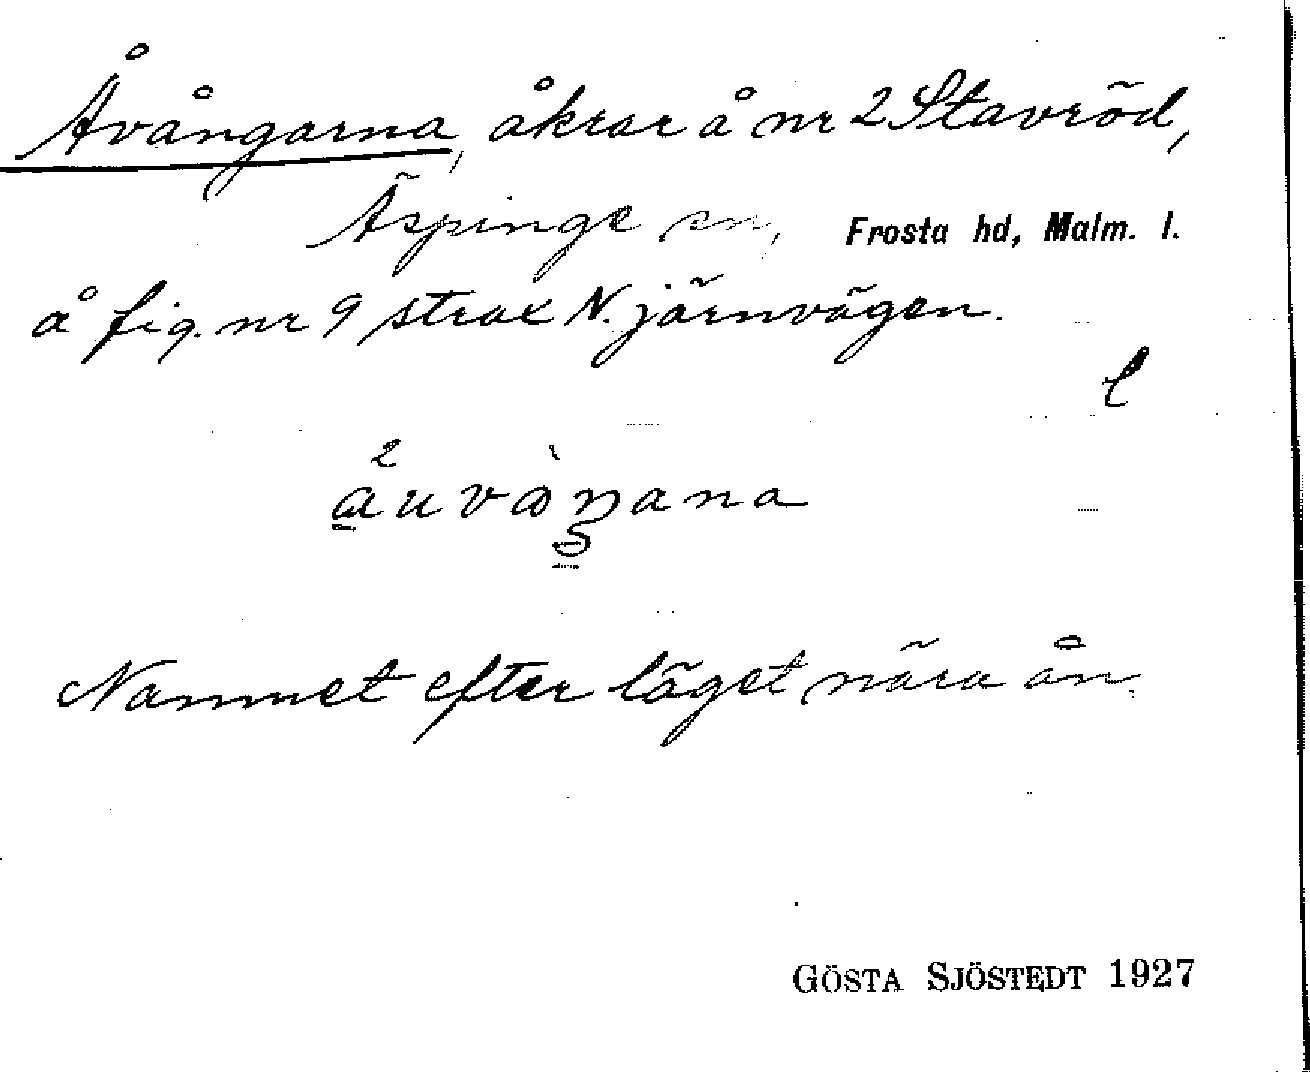 Åvångarna, åkrar å nr 2 Stavröd,
Äspinge sn, Frosta hd, Malm. l.
å fig. nr 9 strax N. järnvägen.
Namnet efter läget nära ån.
GÖSTA SJÖSTEDT 1927